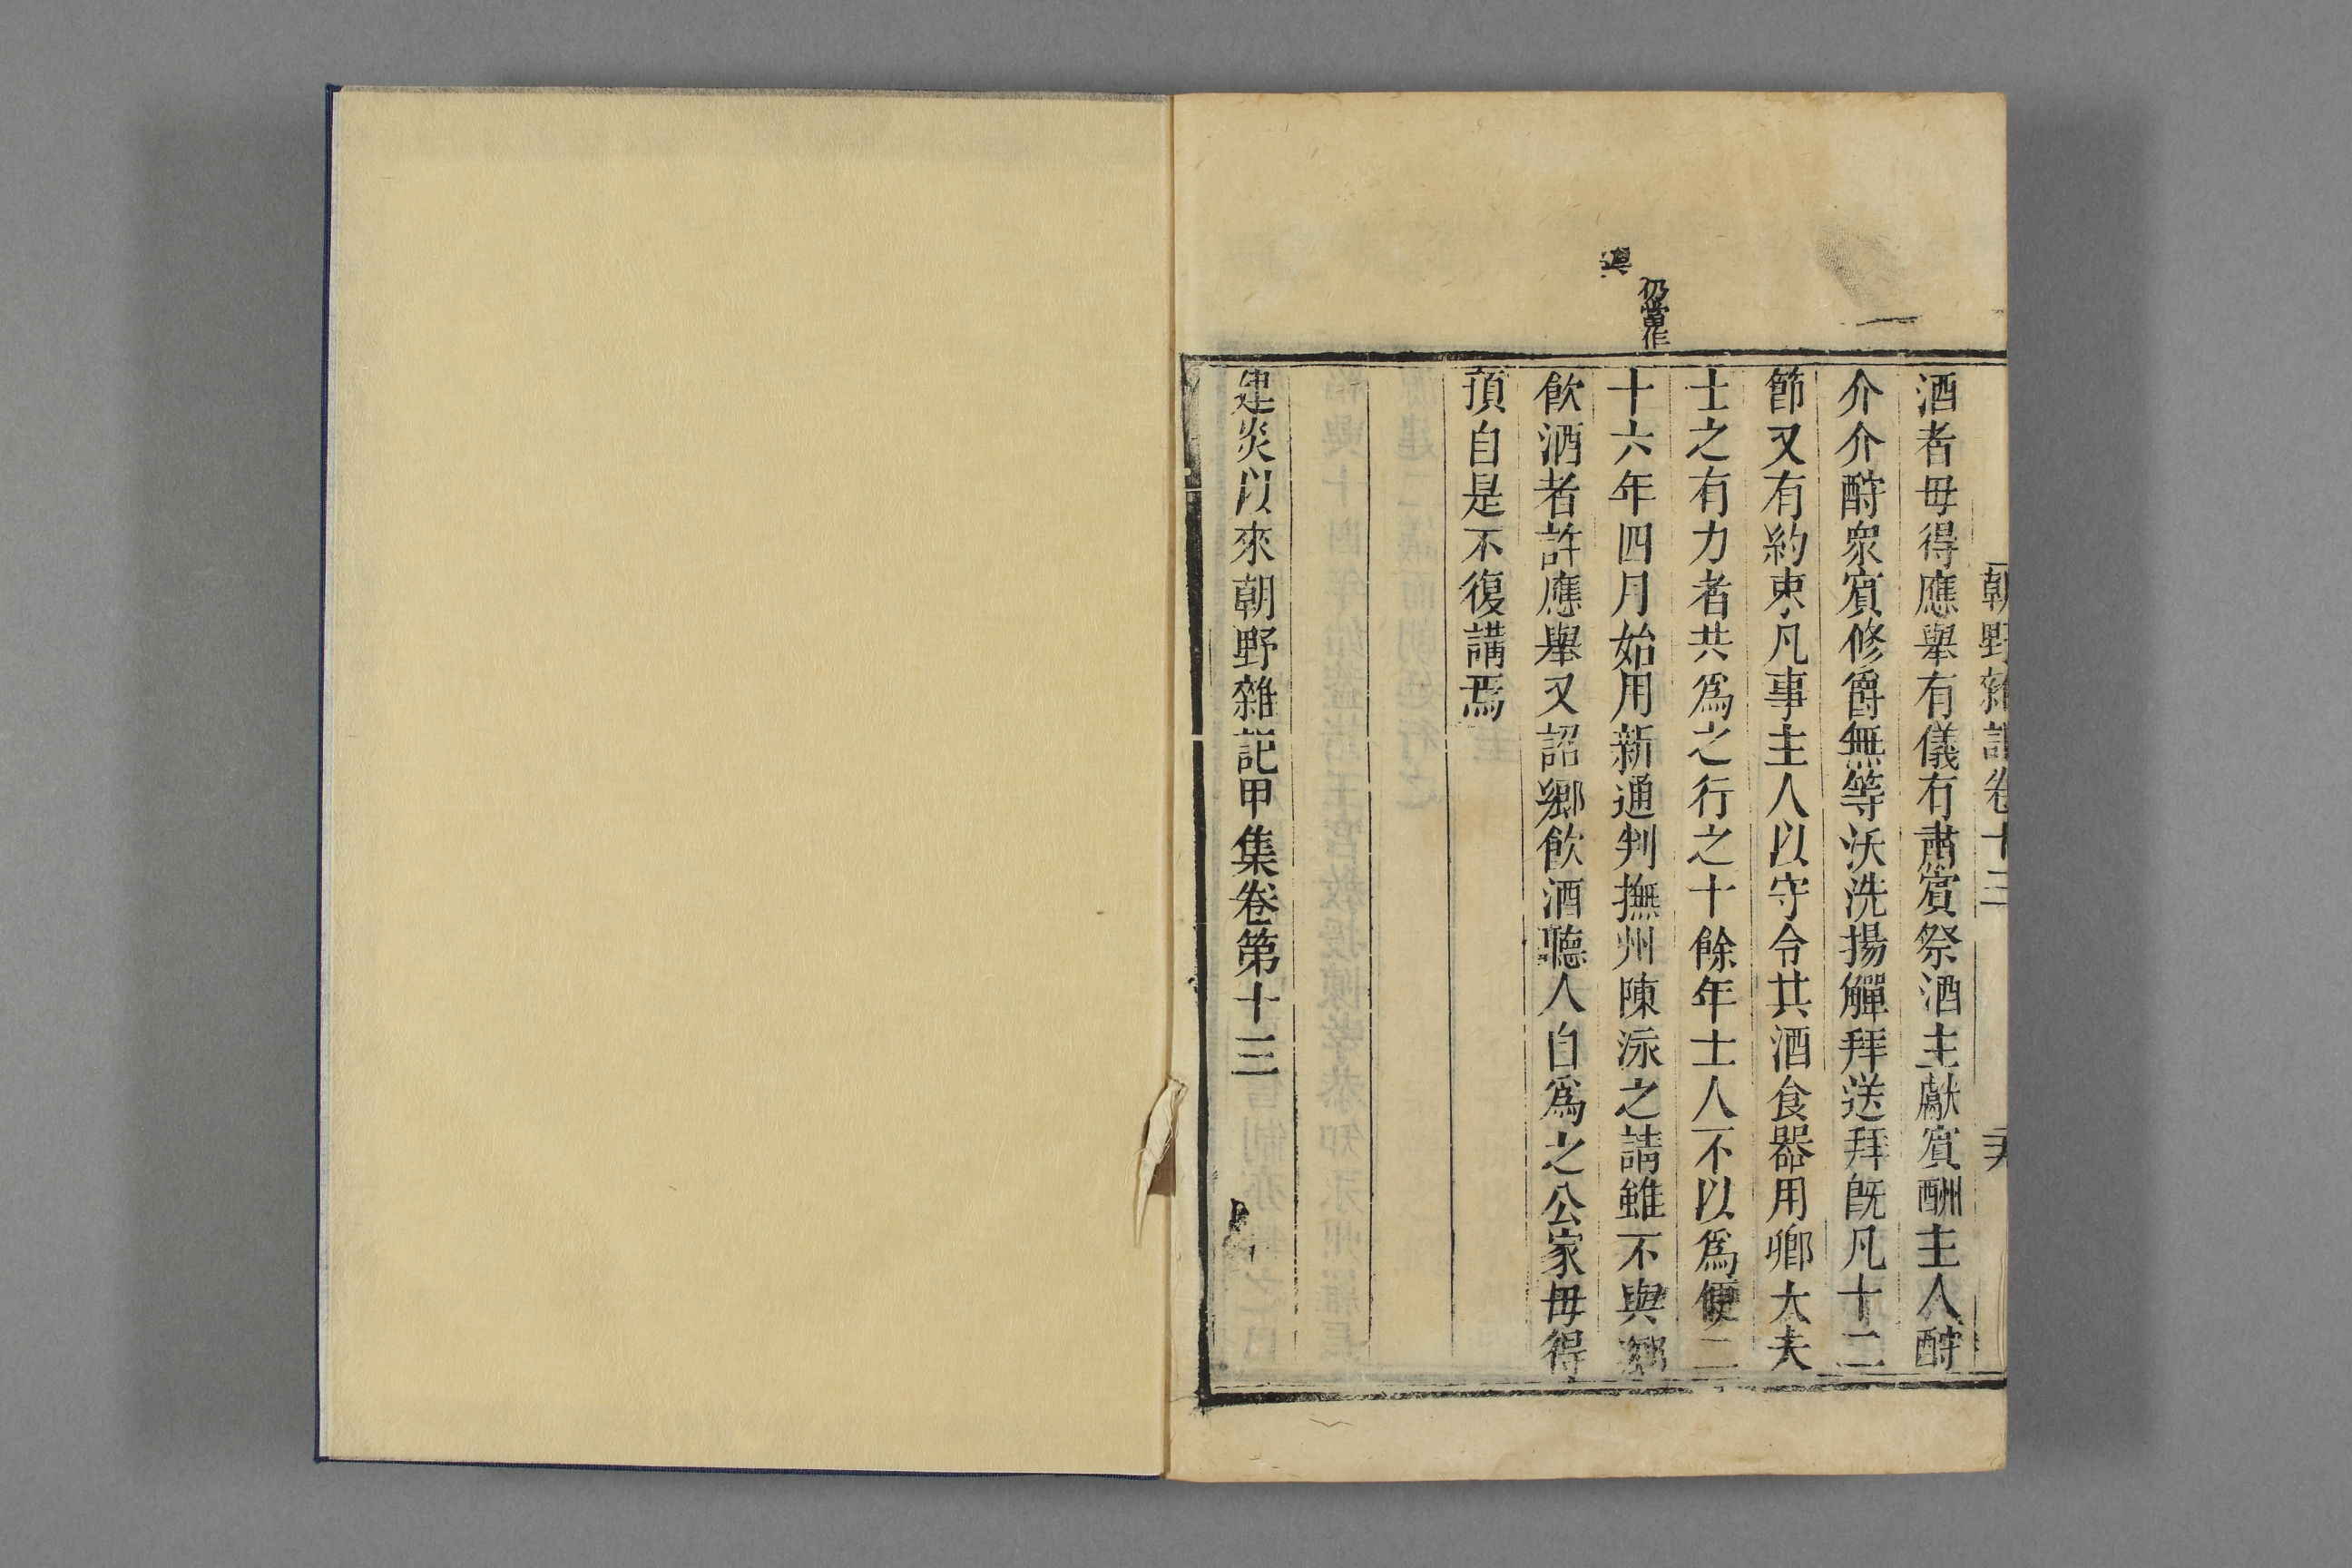 朝野雜記卷十三
酒者毋得應舉有儀有肅賓祭酒主獻賓酬主人酧
介介酧眾賓修爵無筭沃洗揚觶拜送拜旣凡十二
節又有約束凡事主人以守令共酒食器用鄉大夫
士之有力者共爲之行之十餘年士人不以爲便二
十六年四月始用新通判撫州陳泳之請雖不與鄉
飲酒者許應舉又詔鄉飲酒聽人自爲之公家毋得
預自是不復講焉
仍當作
建炎以來朝野雜記甲集卷第十三